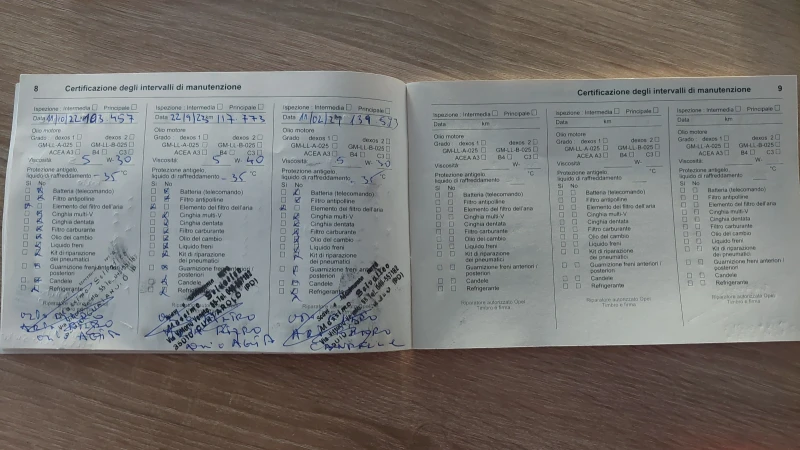 8 Certificazione degli intervalli di manutenzione
Ispezione : Intermedia Principale
Data 11/10/22 km 103 457
Olio motore
Grado dexos 1 dexos 2
GM-LL-A-025 GM-LL-B-025
ACEA A3 B4 C3
Viscosità 5 W- 30
Protezione antigelo
liquido di raffreddamento -35 °C
Sì No
Batteria (telecomando)
Filtro antipolline
Elemento del filtro dell'aria
Cinghia multi-V
Cinghia dentata
Filtro carburante
Olio del cambio
Liquido freni
Kit di riparazione
dei pneumatici
Guarnizione freni anteriori /
posteriori
Candele
Refrigerante
Ispezione : Intermedia Principale
Data 22/9/23 km 117 773
Olio motore
Grado dexos 1 dexos 2
GM-LL-A-025 GM-LL-B-025
ACEA A3 B4 C3
Viscosità 5 W- 40
Protezione antigelo
liquido di raffreddamento -35 °C
Sì No
Batteria (telecomando)
Filtro antipolline
Elemento del filtro dell'aria
Cinghia multi-V
Cinghia dentata
Filtro carburante
Olio del cambio
Liquido freni
Kit di riparazione
dei pneumatici
Guarnizione freni anteriori /
posteriori
Candele
Refrigerante
Ispezione : Intermedia Principale
Data 11/02/ km 139
Olio motore
Grado dexos 1 dexos 2
GM-LL-A-025 GM-LL-B-025
ACEA A3 B4 C3
Viscosità 5 W- 30
Protezione antigelo
liquido di raffreddamento 35 °C
Sì No
Batteria (telecomando)
Filtro antipolline
Elemento del filtro dell'aria
Cinghia multi-V
Cinghia dentata
Filtro carburante
Olio del cambio
Liquido freni
Kit di riparazione
dei pneumatici
Guarnizione freni anteriori /
posteriori
Candele
Refrigerante
Certificazione degli intervalli di manutenzione 9
Ispezione : Intermedia Principale
Data km
Olio motore
Grado dexos 1 dexos 2
GM-LL-A-025 GM-LL-B-025
ACEA A3 B4 C3
Viscosità W-
Protezione antigelo
liquido di raffreddamento °C
Sì No
Batteria (telecomando)
Filtro antipolline
Elemento del filtro dell'aria
Cinghia multi-V
Cinghia dentata
Filtro carburante
Olio del cambio
Liquido freni
Kit di riparazione
dei pneumatici
Guarnizione freni anteriori /
posteriori
Candele
Refrigerante
Riparatore autorizzato Opel
Timbro e firma
Ispezione : Intermedia Principale
Data km
Olio motore
Grado dexos 1 dexos 2
GM-LL-A-025 GM-LL-B-025
ACEA A3 B4 C3
Viscosità W-
Protezione antigelo
liquido di raffreddamento °C
Sì No
Batteria (telecomando)
Filtro antipolline
Elemento del filtro dell'aria
Cinghia multi-V
Cinghia dentata
Filtro carburante
Olio del cambio
Liquido freni
Kit di riparazione
dei pneumatici
Guarnizione freni anteriori /
posteriori
Candele
Refrigerante
Riparatore autorizzato Opel
Timbro e firma
Ispezione : Intermedia Principale
Data km
Olio motore
Grado dexos 1 dexos 2
GM-LL-A-025 GM-LL-B-025
ACEA A3 B4 C3
Viscosità W-
Protezione antigelo
liquido di raffreddamento °C
Sì No
Batteria (telecomando)
Filtro antipolline
Elemento del filtro dell'aria
Cinghia multi-V
Cinghia dentata
Filtro carburante
Olio del cambio
Liquido freni
Kit di riparazione
dei pneumatici
Guarnizione freni anteriori /
posteriori
Candele
Refrigerante
Riparatore autorizzato Opel
Timbro e firma